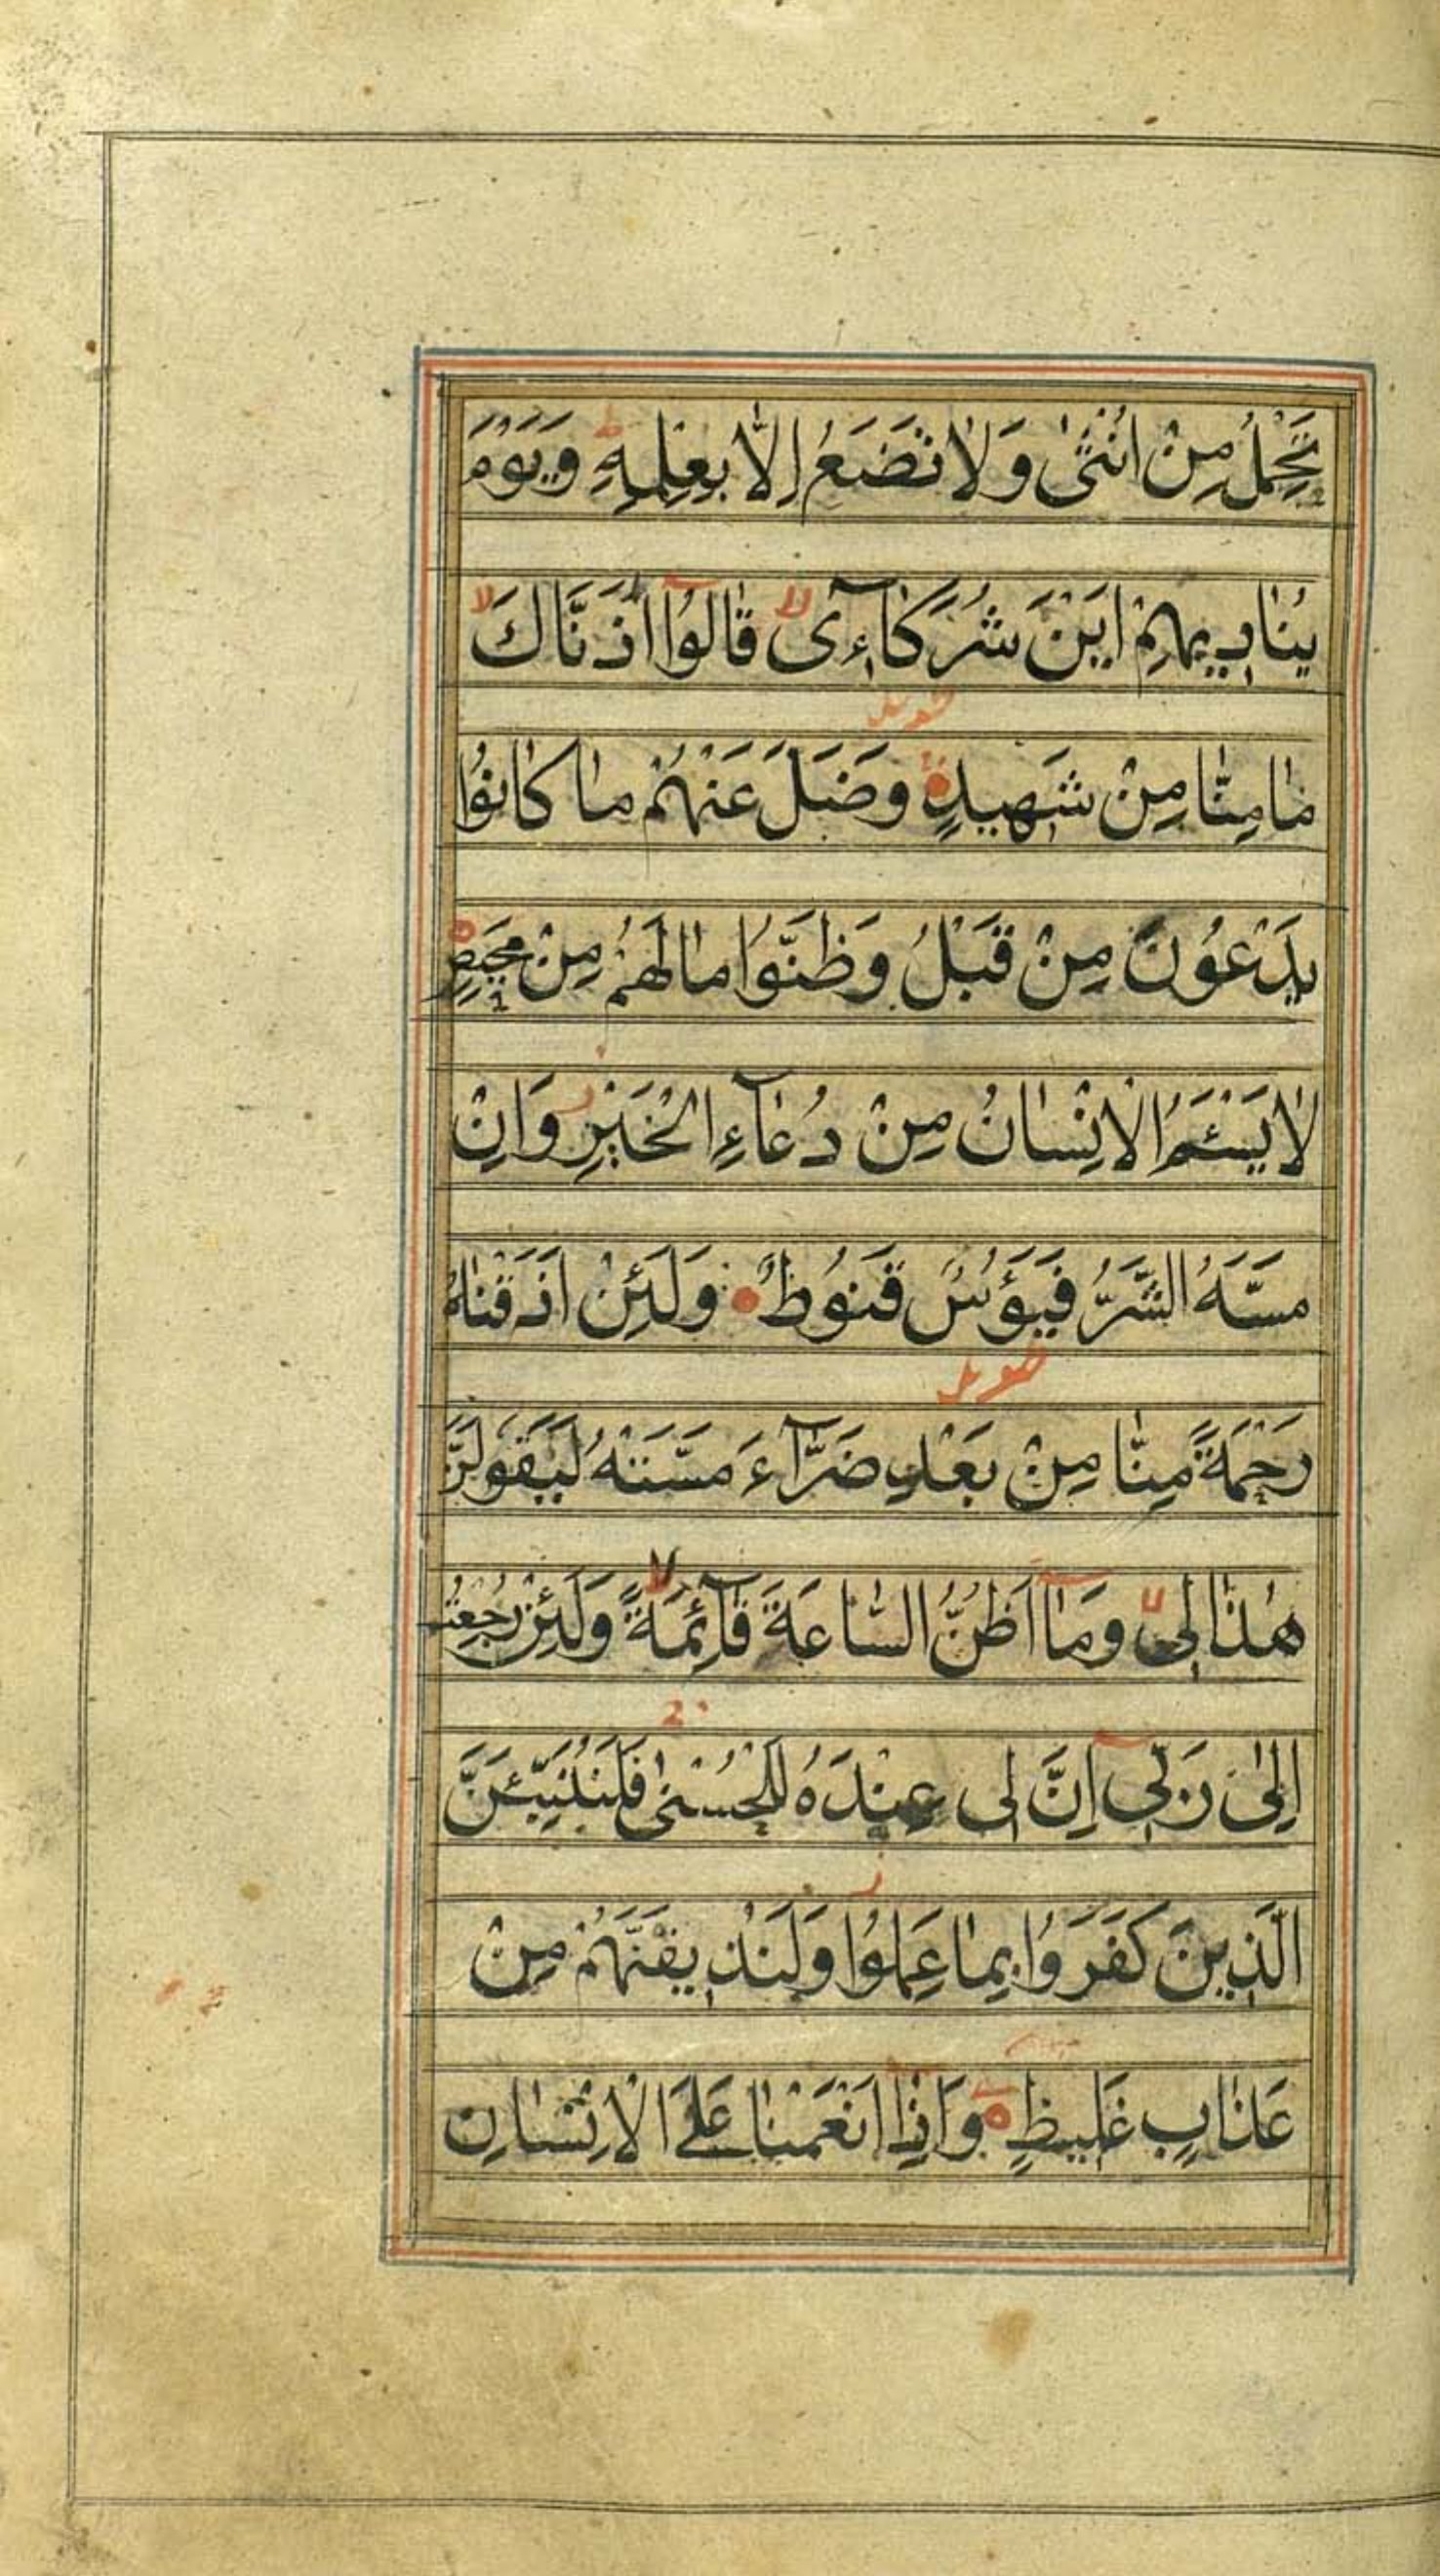 تَحْمِلُ مِنْ اُنْثٰى وَلَا تَضَعُ اِلَّا بِعِلْمِهٖ وَيَوْمَ
يُنَادِيهِمْ اَيْنَ شُرَكَآءِى لا قَالُوٓا اٰذَنَّاكَ لا
مَا مِنَّا مِنْ شَهِيدٍ وَضَلَّ عَنْهُمْ مَا كَانُوا
يَدْعُونَ مِنْ قَبْلُ وَظَنُّوا مَا لَهُمْ مِنْ مَحِيصٍ
لَا يَسْـَٔمُ الْاِنْسَانُ مِنْ دُعَآءِ الْخَيْرِ وَاِنْ
مَسَّهُ الشَّرُّ فَيَؤُسٌ قَنُوطٌ وَلَئِنْ اَذَقْنَاهُ
رَحْمَةً مِنَّا مِنْ بَعْدِ ضَرَّآءَ مَسَّتْهُ لَيَقُولَنَّ
هٰذَا لِى لا وَمَآ اَظُنُّ السَّاعَةَ قَآئِمَةً لا وَلَئِنْ رُجِعْتُ
اِلٰى رَبِّىٓ اِنَّ لِى عِنْدَهُ لَلْحُسْنٰى فَلَنُنَبِّئَنَّ
الَّذِينَ كَفَرُوا بِمَا عَمِلُوا وَلَنُذِيقَنَّهُمْ مِنْ
عَذَابٍ غَلِيظٍ وَاِذَآ اَنْعَمْنَا عَلَى الْاِنْسَانِ